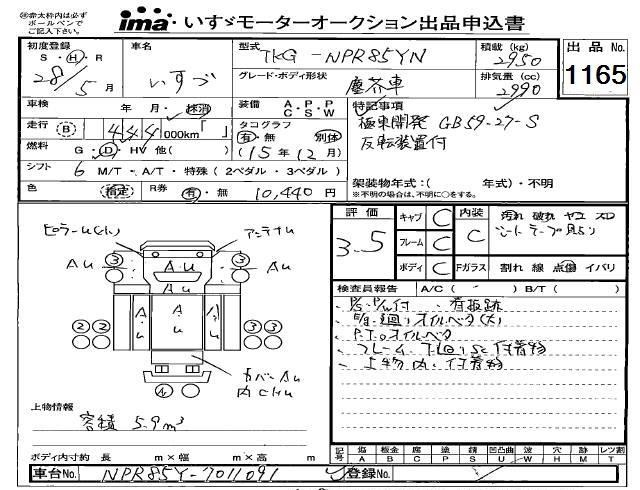 ㊟赤太枠内は必ず
ボールペンで
ご記入下さい。
ima・いすゞモーターオークション出品申込書
初度登録 S・H・R 28年5月
車名 いすゞ
型式 TKG-NPR85YN
積載(kg) 2950
出品No.
1165
グレード・ボディ形状 塵芥車
排気量(cc) 2990
車検 年 月・抹消
装備 A・P・P C S W
特記事項
走行 B 444,000km「 」
タコグラフ 有・無 別体
極東開発 GB59-27-S
反転装置付
燃料 G・D・HV 他( )
(15年12月)
シフト 6 M/T・A/T・特殊(2ペダル・3ペダル)
架装物年式:( 年式)・不明
※不明の場合は、不明に○をする。
色 指定 R券 有・無 10,440円
評価 3.5
キャブ C
内装 C
汚れ 破れ ヤコ スレ
フレーム C
ボディ C
Fガラス 割れ 線 点傷 イバリ
ピラーu(ku)
アンテナu
Au
3
3
Au
A・u
Au
A・u
A・u
A・u
2 2
3 3
カバーAu
内Cku
検査員報告 A/C( ) B/T( )
看板跡
オイルベタ(大)
P.T.Oオイルベタ
フレーム、下回りSc 付着物
上物内、付着物
上物情報
容積 5.9m³
ボディ内寸約 長 m×幅 m×高 m
記号 塩A 板金B 腐C 塗P 錆S 凹凸曲U 波W 穴H 跡M レツ割T
車台No. NPR85Y-7011091
登録No.